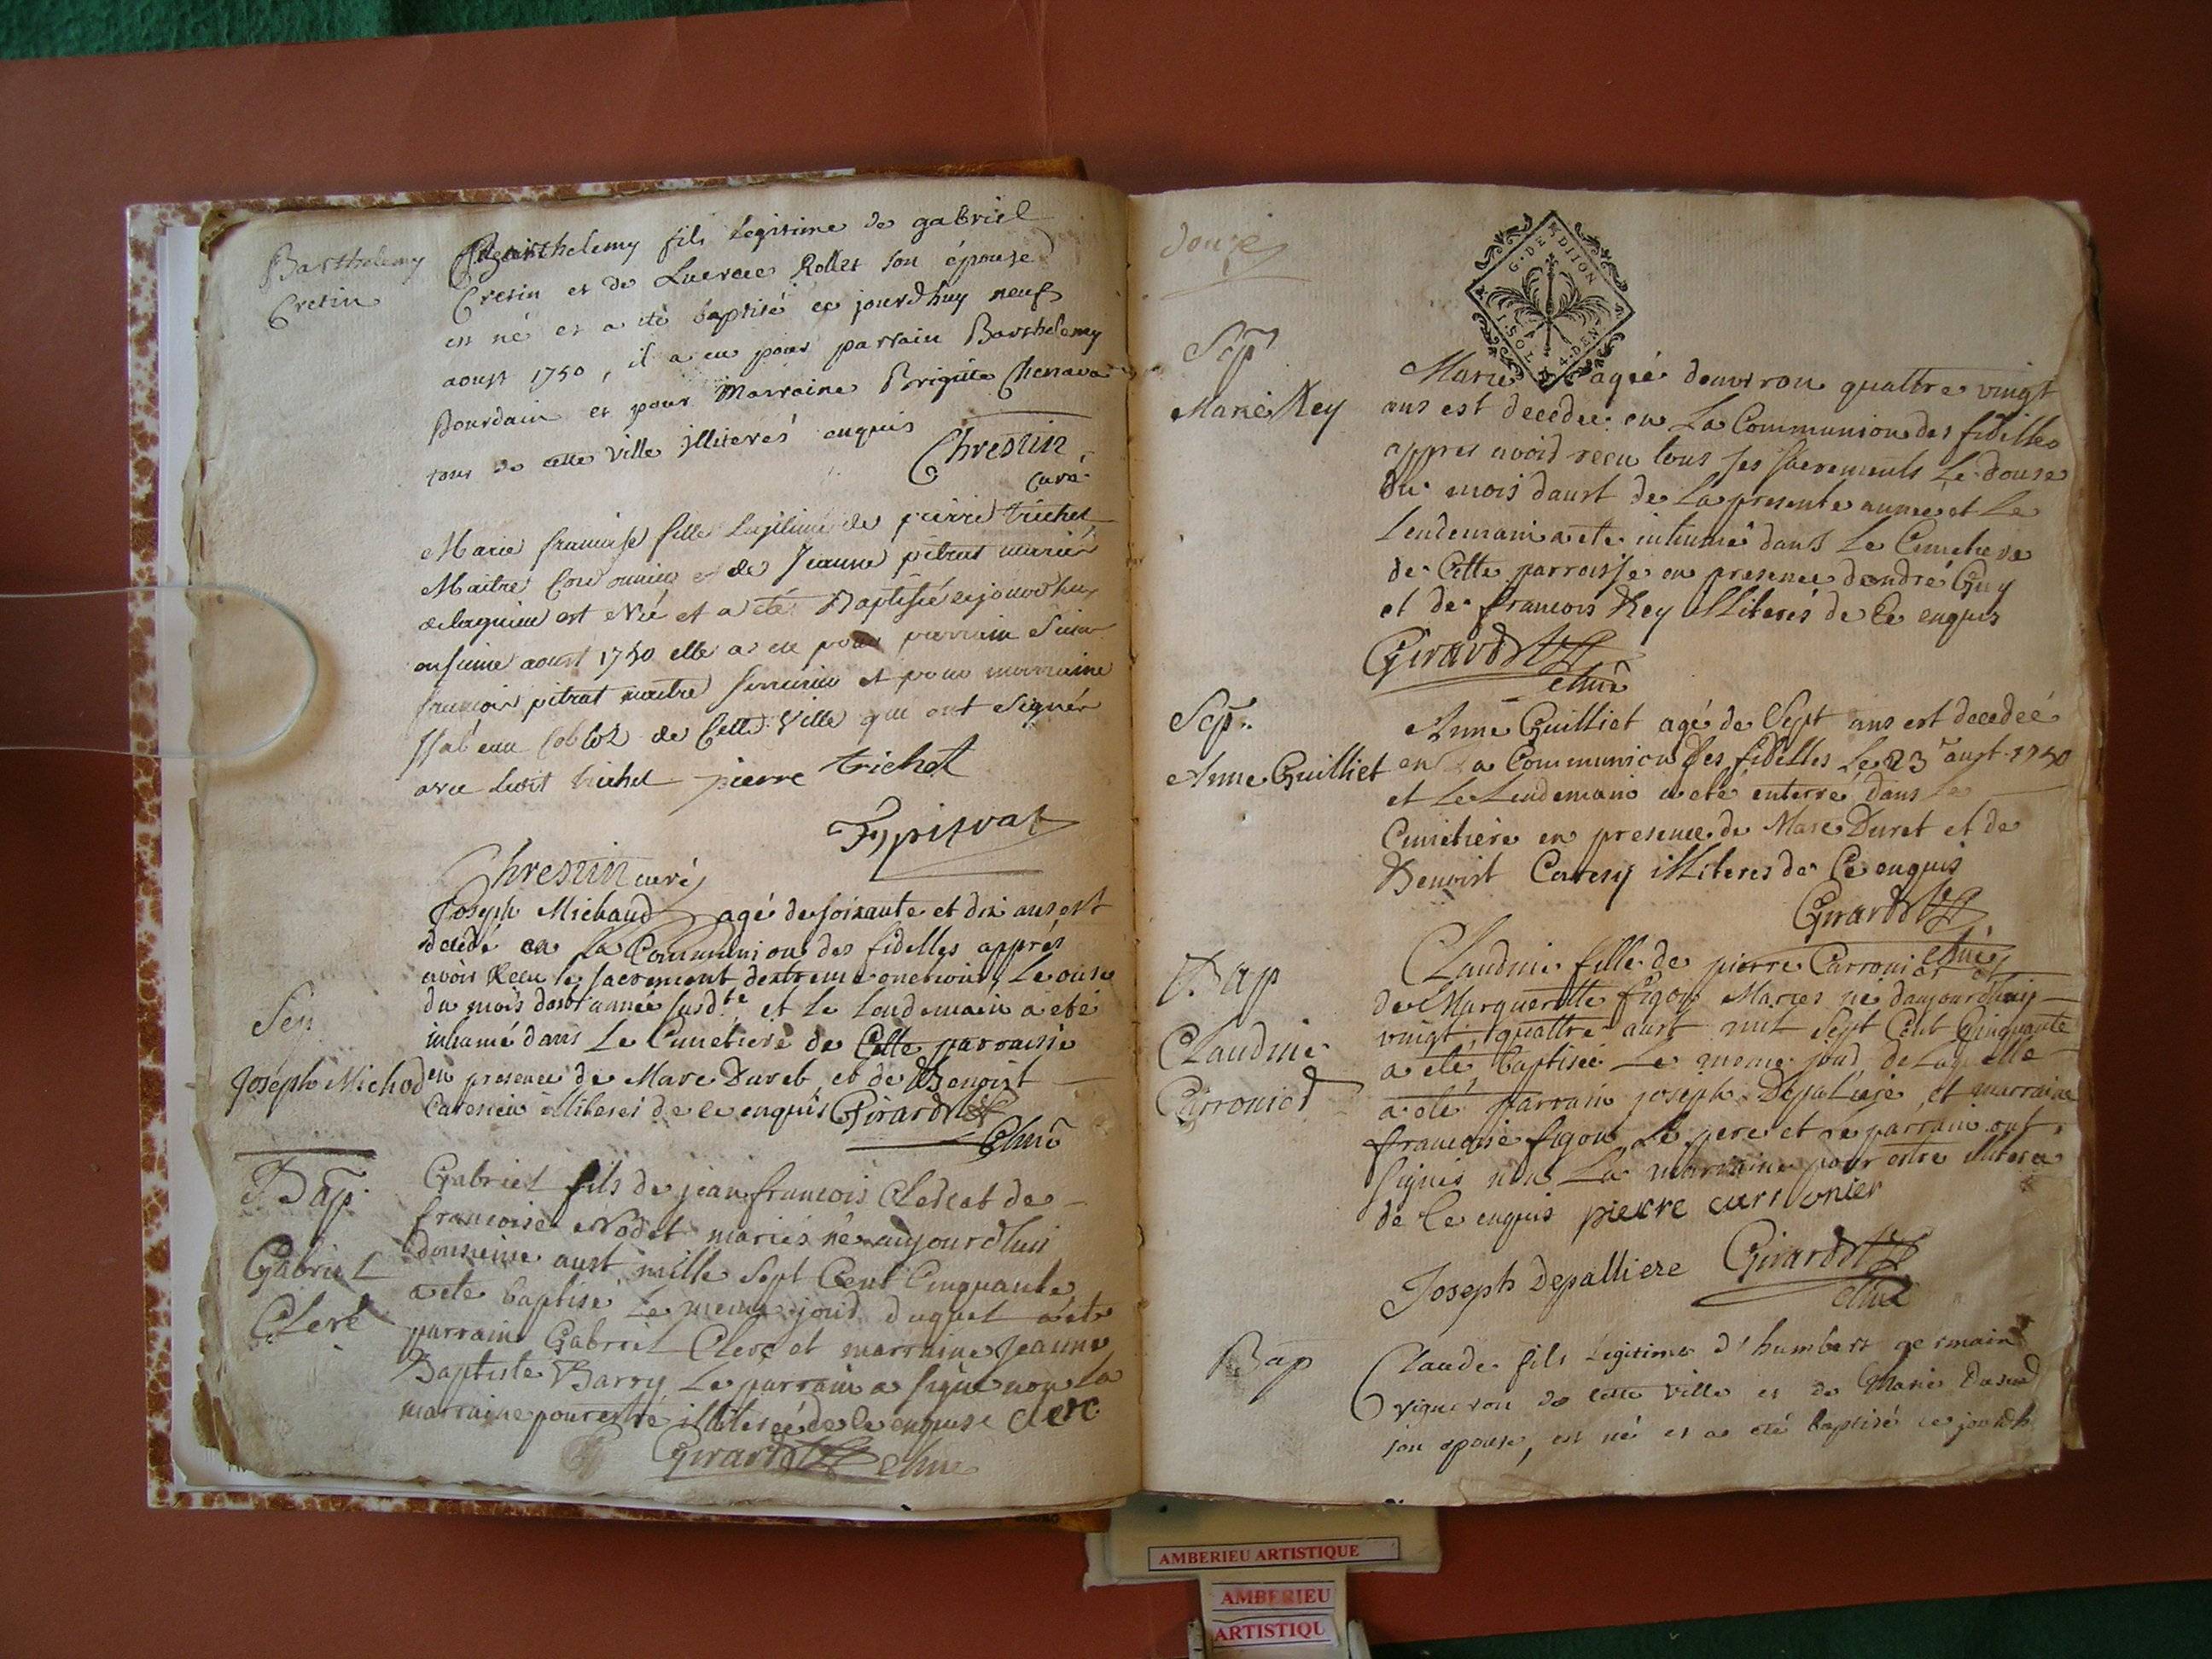 Barthelemy
Cretin
Barthelemy fils Legitime de gabriel
Cretin et de Lucrece Rollet son épouse
est né et a eté baptisé ce jourdhuy neuf
aoust 1750, il a eu pour parrain Barthelemy
Bourdain et pour Marraine Brigitte Chenava
tous de cette ville illiterés enquis
Chrestin
Curé
Marie francoise fille Legitime de pierre trichet
Maitre Cordonnier et de Jeanne pitrat mariés
delaquelle est Née et a eté Baptisée cejourdhuy
onsieme aoust 1750 elle a eu pour parrain Sieur
francois pitrat maitre serrurier et pour marraine
de Cette Ville qui ont Signér
avec ledit trichet pierre trichet
F pitrat
Chrestin curé
Joseph Michaud agé de soixante et dix ans est
decedé en La Communion des fidelles apprés
avoir Recu le sacrement dextreme onction Le onse
du mois doust année susd.te et Le Lendemain a eté
inhumé dans Le Cimetiere de Cette parroisse
en presence de Marc Duret et de Benoist
illiterés de ce enquis Girard
Sep
Joseph Michod
Bap
Gabriel
Clerc
Gabriel fils de jean francois Clerc et de
francoise Nodet mariés né aujourdhui
dousieme aust mille Sept Cent Cinquante
a ete baptise Le meme jour duquel a ete
parrain Gabriel Clerc et marraine Jeanne
Baptiste Barry Le parrain a signé non La
marraine pour estre illiterée de ce enquise clerc
Girard
douze
G. DE DIJON
1 SOL 4 DEN
Sep
Marie Rey
Marie agée denviron quattre vingt
ans est decedée en La Communion des fidelles
appres avoir recu tous ses sacrements Le douse
du mois daust de La presente année et Le
Lendemain a ete inhumé dans Le Cimetiere
de Cette parroisse en presence dandré Guy
et de francois Rey illiterés de Ce enquis
Girard
Sep.
Anne Guilliet
Anne Guilliet agé de Sept ans est decedeé
en La Communion des fidelles Le 23 aust 1750
et Le Lendemain a eté enterré dans le
Cimetiere en presence de Marc Duret et de
Benoist illiteres de Ce enquis
Girard
Bap
Claudine
Carronier
Claudine fille de pierre Carronier et
de Marguerite figon Mariés né daujourdhuy
vingt quattre aust mil Sept Cent Cinquante
a eté baptiseé Le meme jour de Laquelle
a eté parrain joseph Depaliere, et marraine
francoise figon Le pere et Le parrain ont
signés non La marraine pour estre illiteré
de Ce enquis pierre carronier
Joseph Depalliere Girard
Bap
Claude fils Legitime d'humbert germain
vigneron de cette ville et de Marie
son epouse, est né et a eté baptisé ce jourdh
AMBERIEU ARTISTIQUE
AMBERIEU
ARTISTIQU